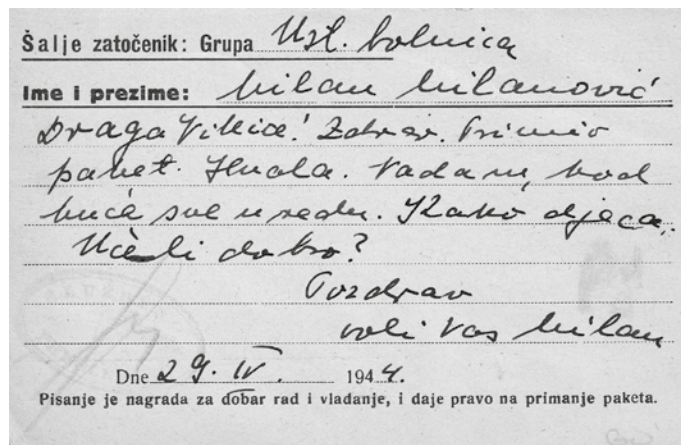 Šalje zatočenik: Grupa Ust. bolnica
Ime i prezime: Milan Milanović
Draga Vikice! Zdrav. Primio
paket. Hvala. Nadam, kod
kuće sve u redu. Kako djeca.
Uče li dobro?
Pozdrav
voli Vas Milan
Dne 29. IV. 1944.
Pisanje je nagrada za dobar rad i vladanje, i daje pravo na primanje paketa.